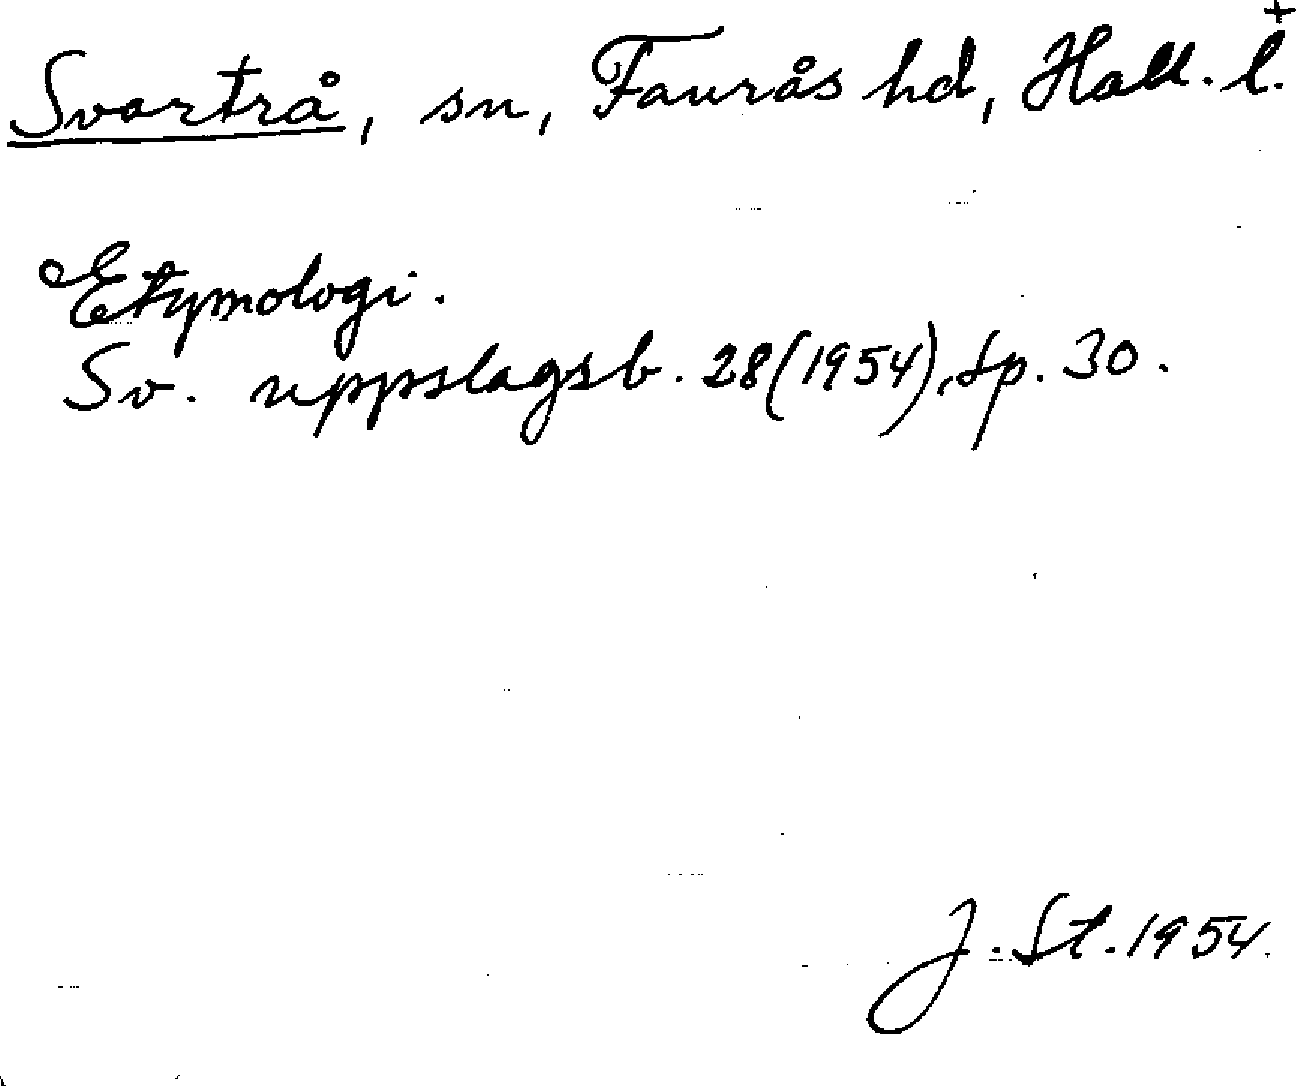 Svartrå, sn, Faurås hd, Hall. l. +
Etymologi.
Sv. uppslagsb. 28(1954), sp. 30.
J. St. 1954.